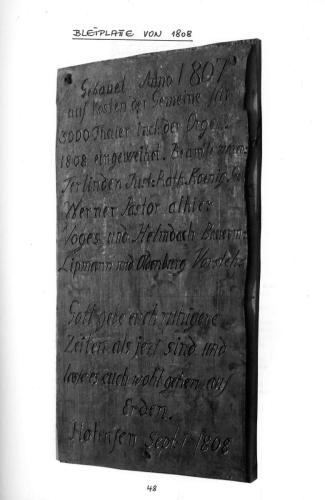 BLEIPLATTE VON 1808
Gebauet Anno 1807
auf Kosten der Gemeine für
3000 Thaler incl. der Orgel
1808 eingeweihet. Beamte waren
Terlinden Just: Rath. Koenig
Werner Pastor alhier
Voges und Helmdach Bauerm
Lipmann und Oldenberg Vorsteh
Gott gebe euch ruhigere
Zeiten als jetzt sind und
lasse es euch wohl gehen auf
Erden.
Hotensen Sept 1808
48